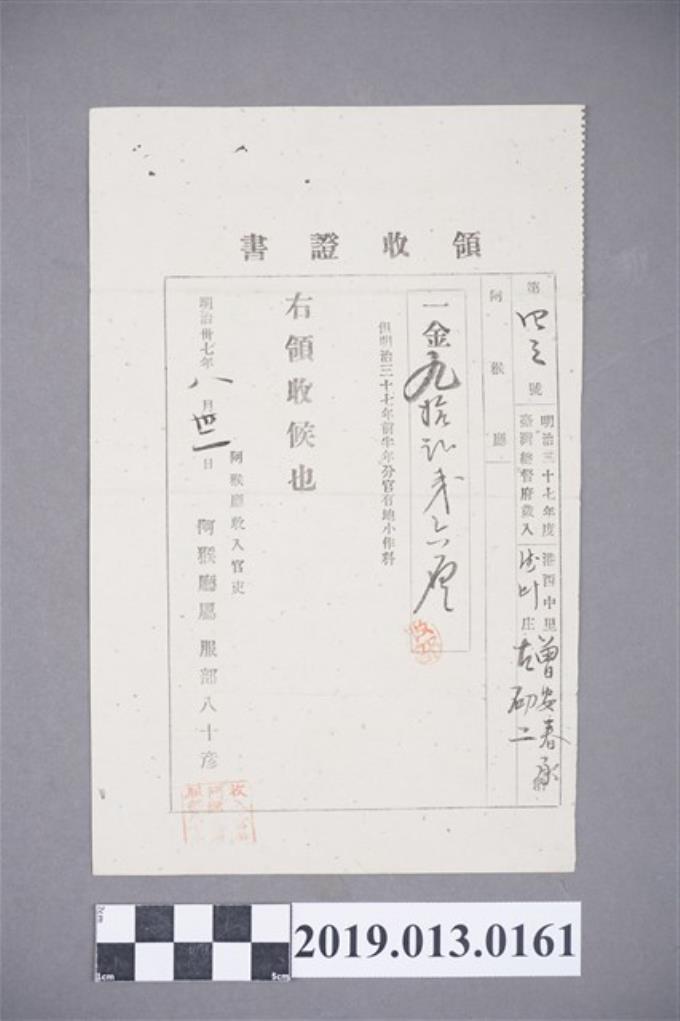 領收證書
第四三號
明治三十七年度
臺灣總督府歲入
港西中里
庄
曾安春
阿緱廳
一金九拾
六厘
但明治三十七年前半年分官有地小作料
右領收候也
明治卅七年八月 日
阿緱廳收入官吏
阿緱廳屬 服部八十彥
2cm
1cm
5cm
2019.013.0161